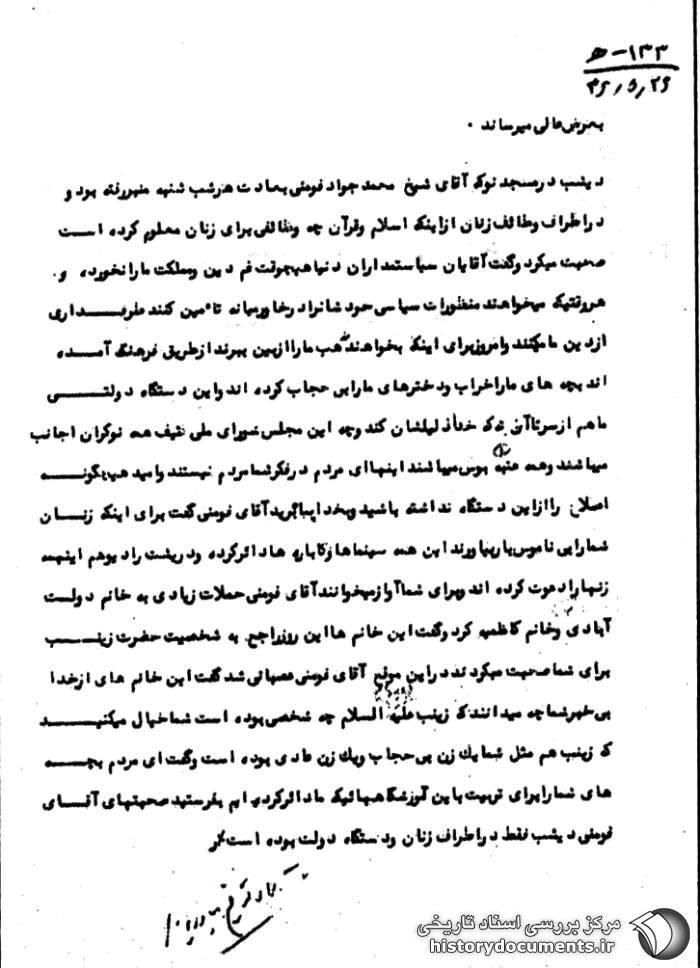 ۱۳۳-هـ
۴۶٫۵٫۲۶
بعرض عالی میرساند .
دیشب در مسجد نوکه آقای شیخ محمد جواد فومنی بعادت هرشب شنبه منبررفته بود و
دراطراف وظائف زنان ازاینکه اسلام وقرآن چه وظائفی برای زنان معلوم کرده است
صحبت میکرد وگفت آقایان سیاستمداران دنیا هیچوقت غم دین ومملکت مارانخورده و
هروقتیکه میخواهند منظورات سیاسی خودشانرا درخاورمیانه تامین کنند طرفداری
ازدین مامیکنند وامروزبرای اینکه بخواهند مذهب ماراازبین ببرند ازطریق فرهنگ آمده
اند بچه های ماراخراب ودخترهای مارابی حجاب کرده اند واین دستگاه دولتی
ماهم ازسرتاآن که خداذلیلشان کند وچه این مجلس شورای ملی کثیف همه نوکران اجانب
میباشند وهمه عتبه بوس میباشند اینهاای مردم درفکرشمامردم نیستند وامید هیچگونه
اصلاح راازاین دستگاه نداشته باشید وبخدا پناه برید آقای فومنی گفت برای اینکه زنان
شمارابی ناموس باربیاورند این همه سینماها وکاباره ها دائرکرده ودرپشت رادیوهم اینهمه
زنهارا دعوت کرده اند وبرای شماآوازمیخوانند آقای فومنی حملات زیادی به خانم دولت
آبادی وخانم کاظمیه کرد وگفت این خانم ها این روزراجع به شخصیت حضرت زینب
برای شماصحبت میکردند دراین موقع آقای فومنی عصبانی شد گفت این خانم های ازخدا
بی خبرشماچه میدانند که زینب علیه السلام چه شخصی بوده است شماخیال میکنید
که زینب هم مثل شما یک زن بی حجاب ویک زن عادی بوده است وگفت ای مردم بچه
های شمارابرای تربیت باین آموزشگاههائیکه مادائرکرده ایم بفرستید صحبتهای آقای
فومنی دیشب فقط دراطراف زنان ودستگاه دولت بوده است
مرکز بررسی اسناد تاریخی
historydocuments.ir